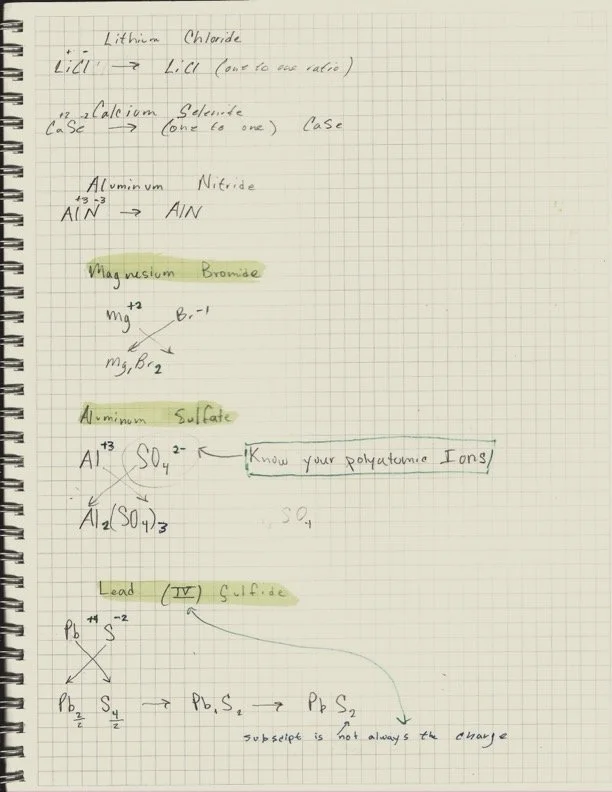 Lithium Chloride
+ -
LiCl → LiCl (one to one ratio)
Calcium Selenide
+2 -2
CaSe → (one to one) CaSe
Aluminum Nitride
+3 -3
AlN → AlN
Magnesium Bromide
Mg+2 Br-1
Mg1Br2
Aluminum Sulfate
Al+3 SO4 2- ← Know your polyatomic Ions!
Al2(SO4)3 SO4
Lead (IV) Sulfide
Pb+4 S-2
Pb2/2 S4/2 → Pb1S2 → PbS2
subscipt is not always the charge